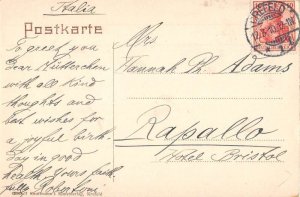 Italia
Postkarte
To greet you
Dear Mütterchen
with all kind
thoughts and
best wishes for
a joyful birth-
day in good
health, yours faith-
fully
Mrs
Hannah Ph. Adams
Rapallo
Hotel Bristol
KREFELD